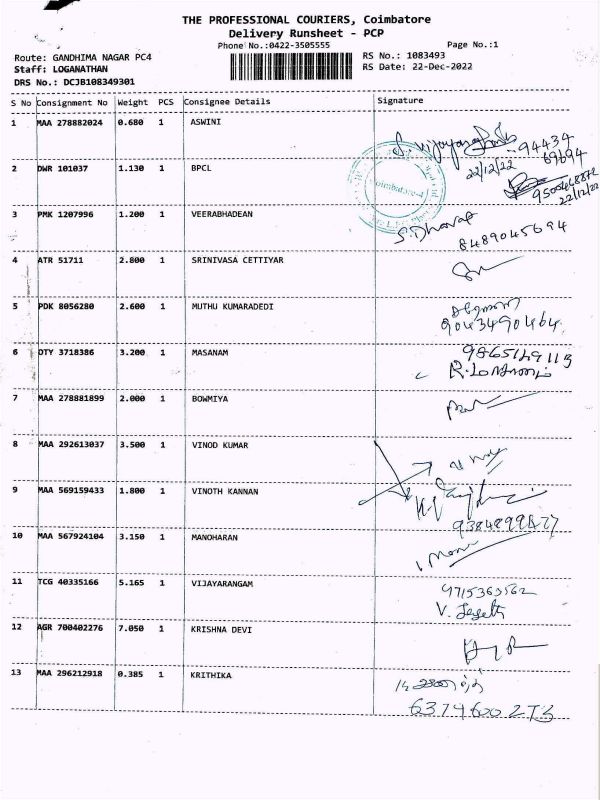 THE PROFESSIONAL COURIERS, Coimbatore
Delivery Runsheet - PCP
Phone No.:0422-3505555
Page No.:1
Route: GANDHIMA NAGAR PC4
RS No.: 1083493
Staff: LOGANATHAN
RS Date: 22-Dec-2022
DRS No.: DCJB108349301
S No Consignment No Weight PCS Consignee Details Signature
1 MAA 278882024 0.680 1 ASWINI
94434
69694
2 DWR 101037 1.130 1 BPCL
22/12/22
Coimbatore-4
22/12/22
3 PMK 1207996 1.200 1 VEERABHADEAN
S. Dharat
8489045694
4 ATR 51711 2.800 1 SRINIVASA CETTIYAR
5 PDK 8056280 2.600 1 MUTHU KUMARADEDI
9043490464
6 OTY 3718386 3.200 1 MASANAM
7 MAA 278881899 2.000 1 BOWMIYA
8 MAA 292613037 3.500 1 VINOD KUMAR
9 MAA 569159433 1.800 1 VINOTH KANNAN
10 MAA 567924104 3.150 1 MANOHARAN
11 TCG 40335166 5.165 1 VIJAYARANGAM
9715363562
12 AGR 700402276 7.050 1 KRISHNA DEVI
13 MAA 296212918 0.385 1 KRITHIKA